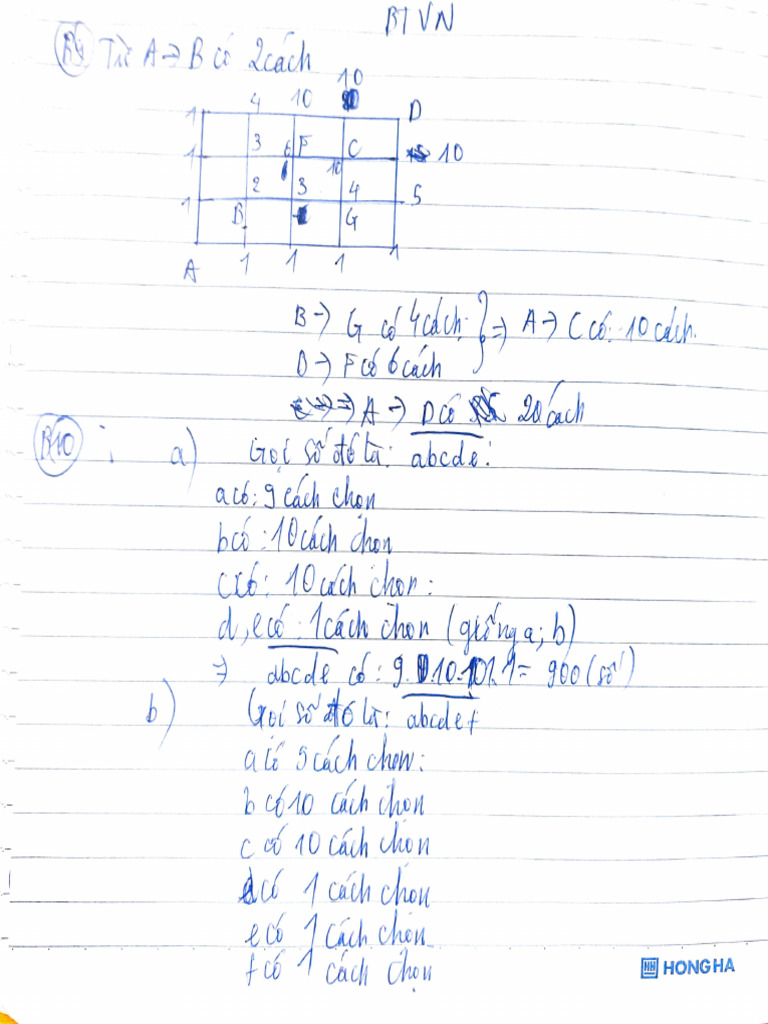 BTVN
B9 Từ A → B có 2 cách
10
4 10
1 D
1 3 6 F C 10
10
1 2 3 4 5
B G
A 1 1 1 1
B → G có 4 cách } ⇒ A → C có: 10 cách.
D → F có 6 cách
⇒ A → D có 20 cách
B10 : a) Gọi số đó là: abcde:
a có: 9 cách chọn
b có: 10 cách chọn
c có: 10 cách chọn:
d, e có: 1 cách chọn (giống a; b)
⇒ abcde có: 9.10.10.1.1 = 900 (số)
b) Gọi số đó là: abcdef
a có 5 cách chọn:
b có 10 cách chọn
c có 10 cách chọn
d có 1 cách chọn
e có 1 cách chọn
f có 1 cách chọn
HH HONG HA